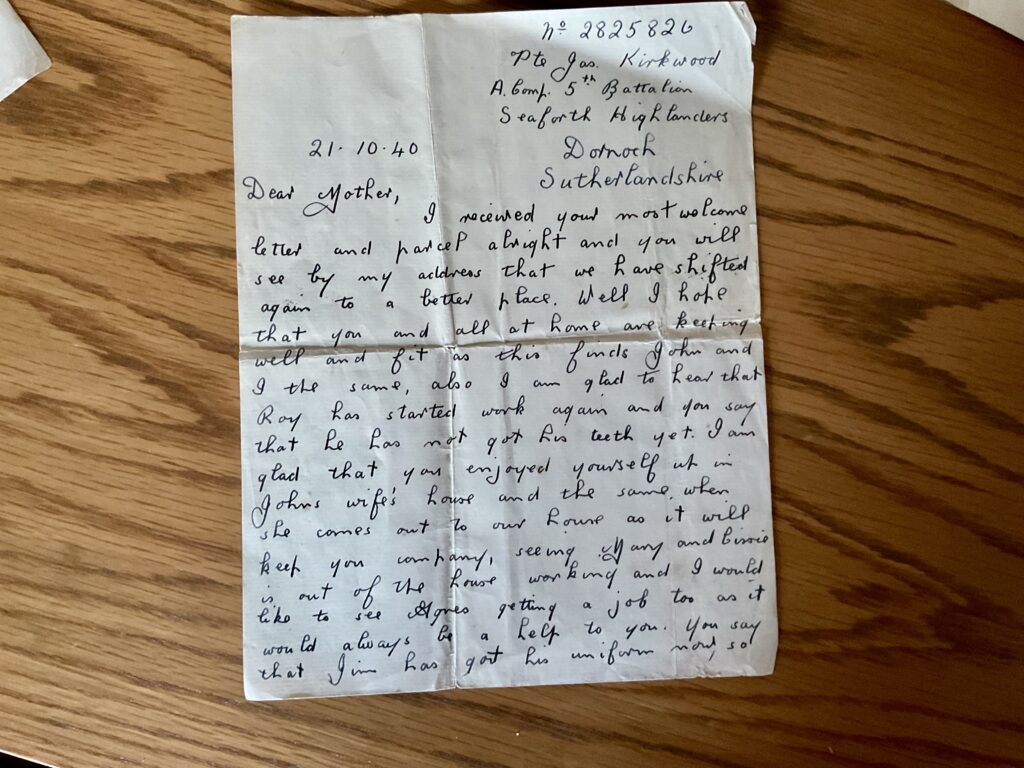 No 2825826
Pte Jas. Kirkwood
A. Comp. 5th Battalion
Seaforth Highlanders
21·10·40 Dornoch
Sutherlandshire
Dear Mother,
I received your most welcome
letter and parcel alright and you will
see by my address that we have shifted
again to a better place. Well I hope
that you and all at home are keeping
well and fit as this finds John and
I the same, also I am glad to hear that
Roy has started work again and you say
that he has not got his teeth yet. I am
glad that you enjoyed yourself up in
Johns wife's house and the same when
she comes out to our house as it will
keep you company, seeing Mary and Cissie
is out of the house working and I would
like to see Agnes getting a job too as it
would always be a help to you. You say
that Jim has got his uniform now, so